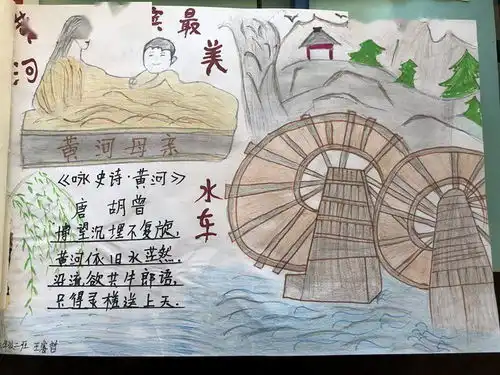 河
最美
黄河母亲
《咏史诗·黄河》
唐 胡曾
博望沉埋不复旋,
黄河依旧水茫然.
沿流欲共牛郎语,
只得灵槎送上天.
水车